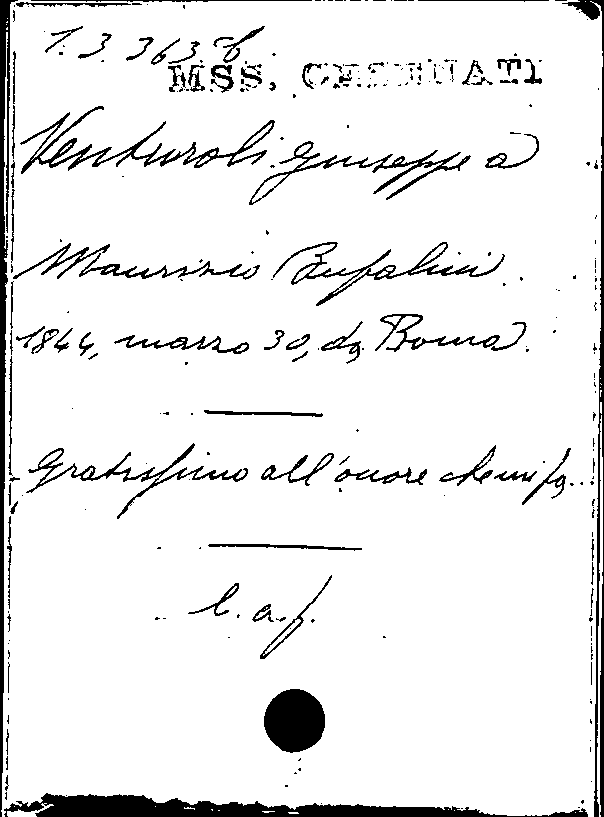 1. 3. 363 b
MSS. CESENATI
Venturoli Giuseppe a
Maurizio Bufalini
1844, marzo 30, da Roma.
Gratissimo all'onore che mi fa...
l. a. f.